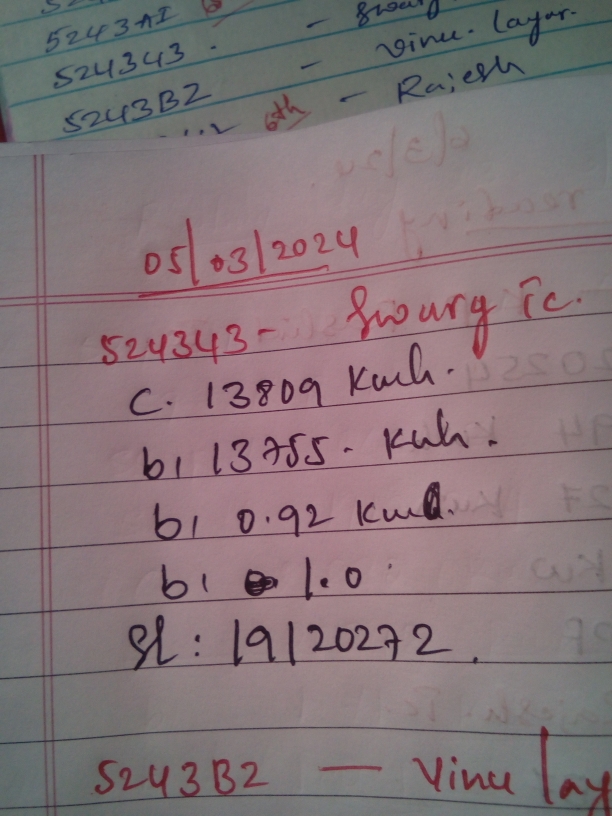 5243A1
524343 -
5243B2 - vinu. layar.
6th - Rajesh
05/03/2024
524343 - Swarg Tc.
C. 13809 Kwh.
b1 13755. Kwh.
b1 0.92 Kw
b1 1.0
Sl: 19120272.
5243B2 — Vinu lay